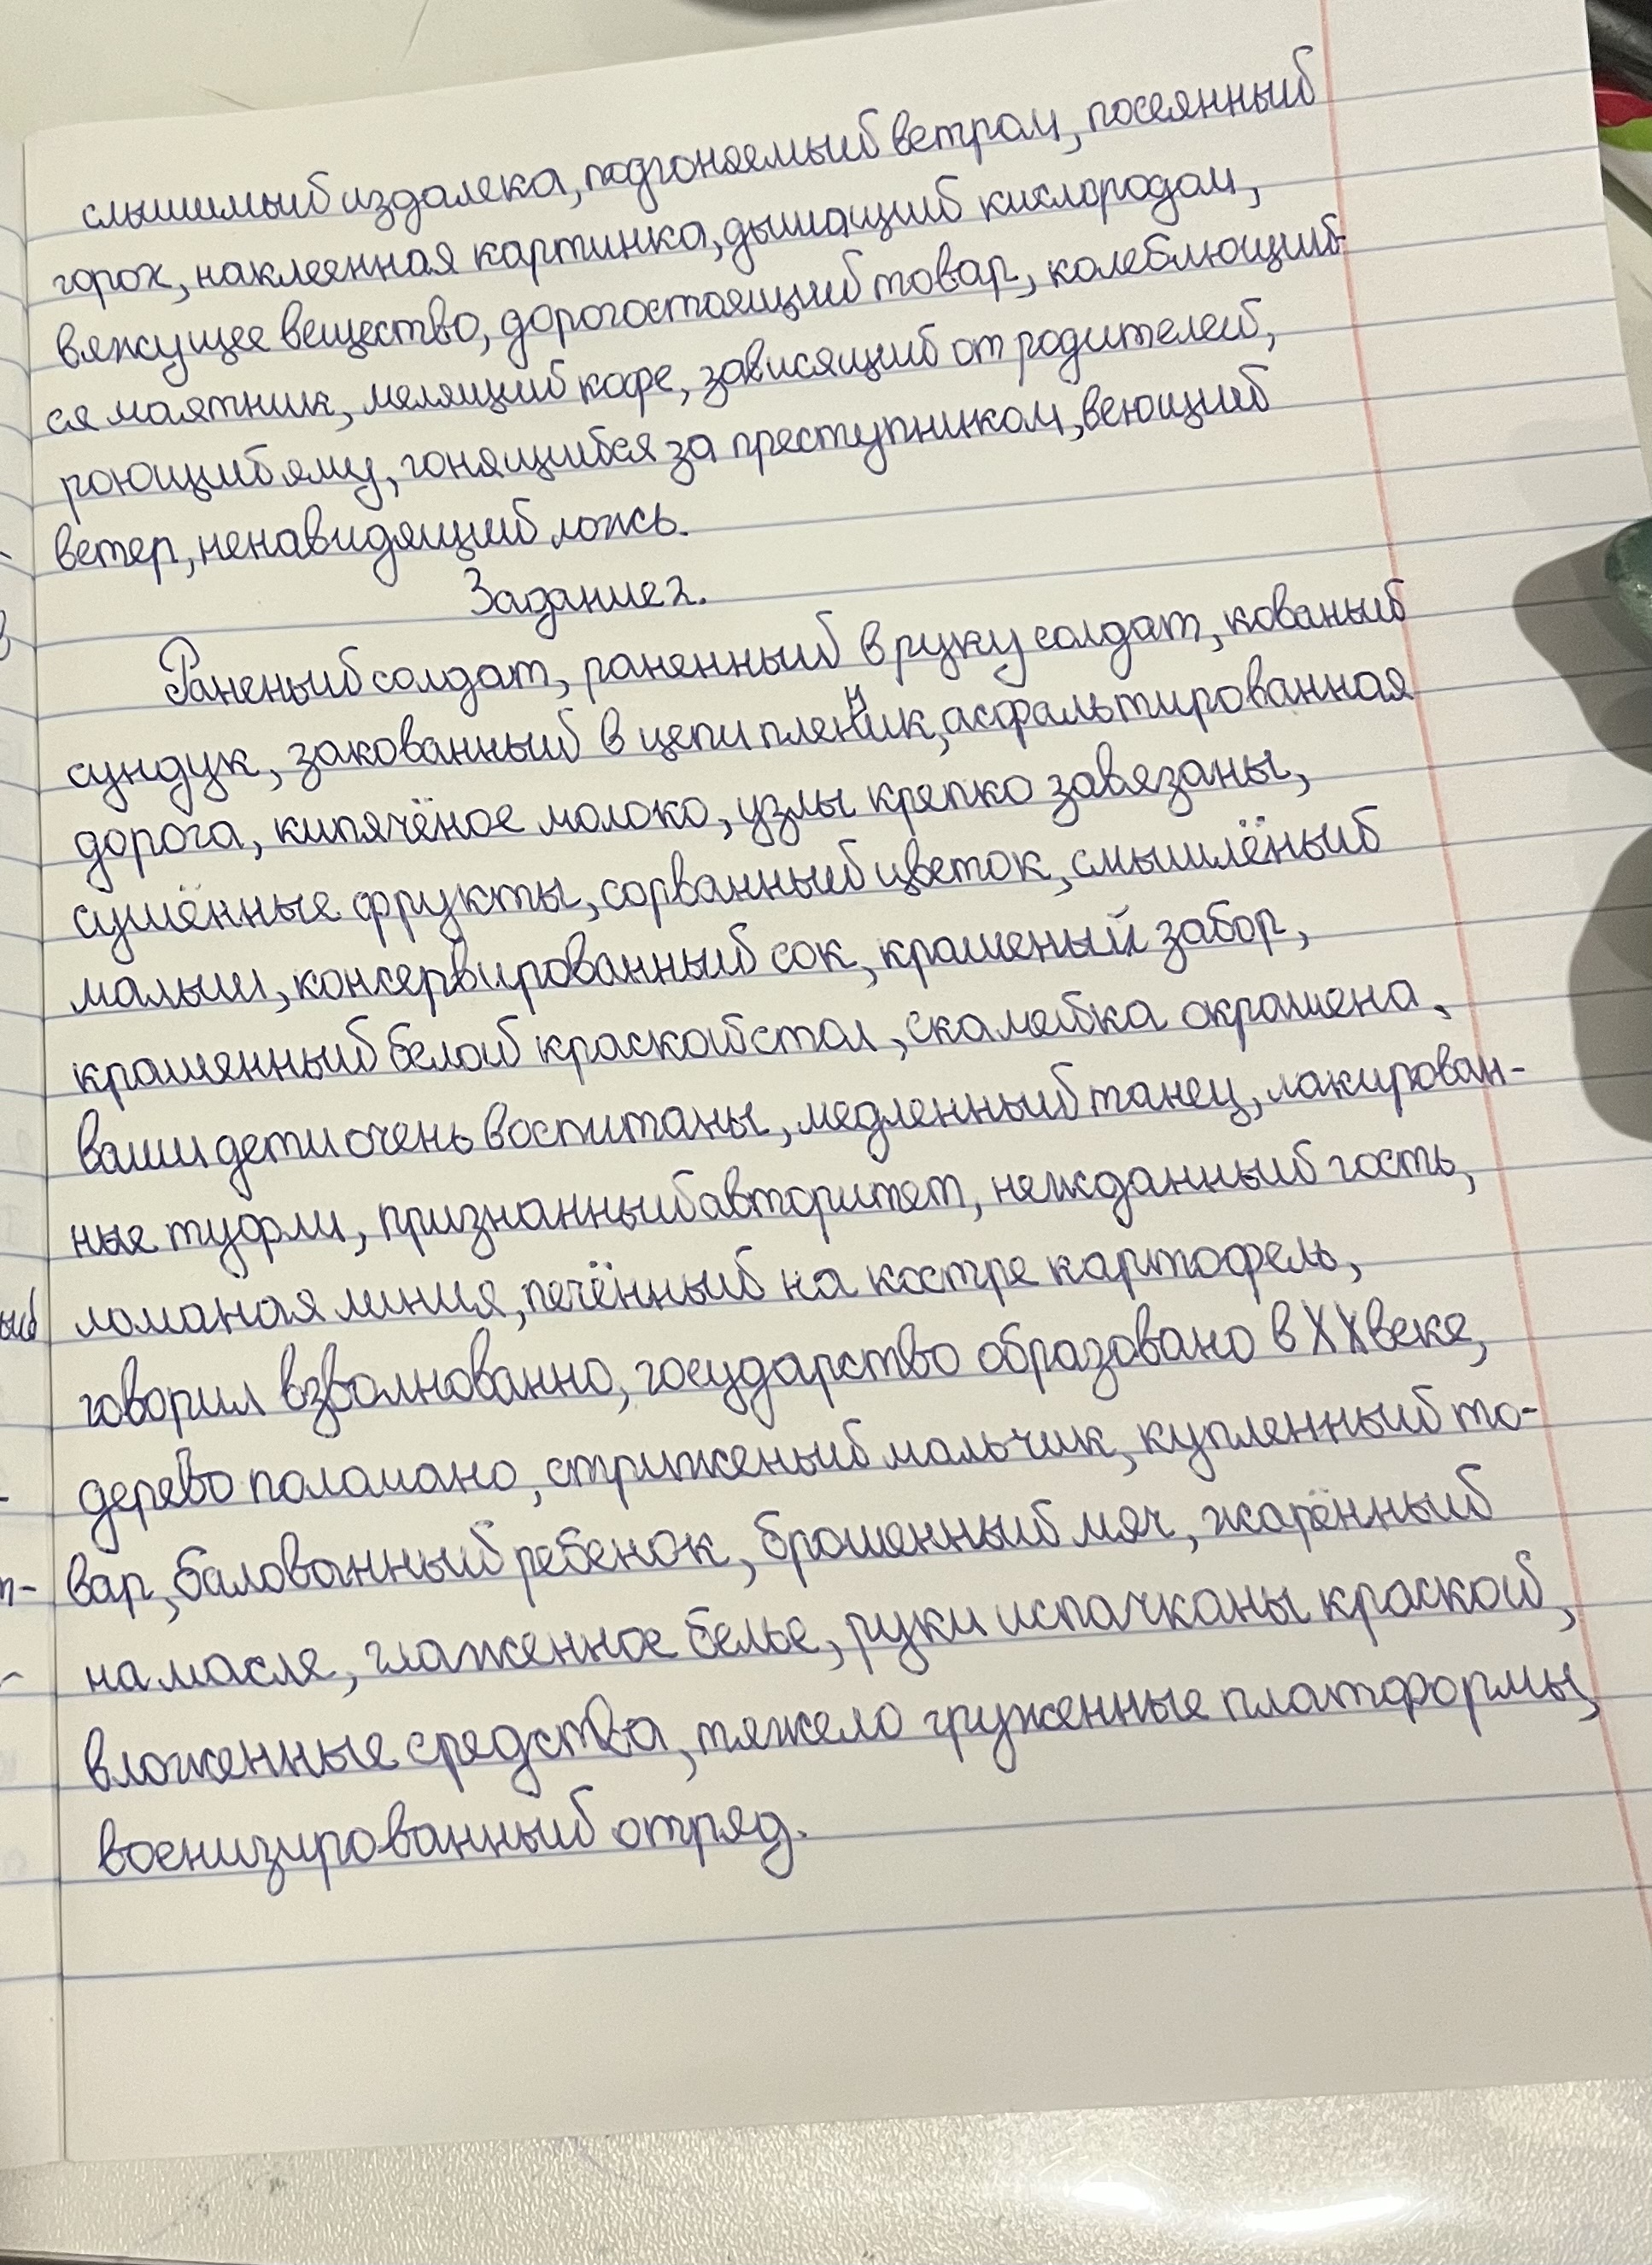 слышимый издалека, подгоняемый ветром, посеянный
горох, наклеенная картинка, дышащий кислородом,
вяжущее вещество, дорогостоящий товар, колеблющий-
ся маятник, мелящий кофе, зависящий от родителей,
роющий яму, гонящийся за преступником, веющий
ветер, ненавидящий ложь.
Задание 2.
Раненый солдат, раненный в руку солдат, кованый
сундук, закованный в цепи пленник, асфальтированная
дорога, кипячёное молоко, узлы крепко завязаны,
сушённые фрукты, сорванный цветок, смышлёный
малыш, консервированный сок, крашеный забор,
крашенный белой краской стол, скамейка окрашена,
ваши дети очень воспитаны, медленный танец, лакирован-
ные туфли, признанный авторитет, нежданный гость,
ый ломаная линия, печённый на костре картофель,
говорил взволнованно, государство образовано в XX веке,
дерево поломано, стриженый мальчик, купленный то-
вар, балованный ребенок, брошенный мяч, жарённый
на масле, глаженное белье, руки испачканы краской,
вложенные средства, тяжело груженные платформы,
военизированный отряд.